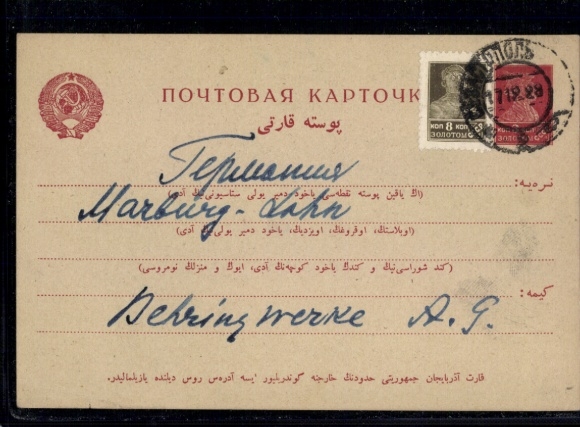 ПОЧТОВАЯ КАРТОЧК
پوسته قارتی
КОП 8 КОП
ЗОЛОТОМ
17.12.28
Германия
نره‌یه:
(اڭ یاقین پوسته نقطه‌سی یاخود دمیر یولی ستاسیونی‌نڭ آدی)
Marburg-Lahn
(اوبلاستڭ، اوقروغڭ، اویزدیڭ، یاخود دمیر یولی‌نڭ آدی)
(کند شوراسی‌نیڭ و کندڭ یاخود کوچه‌نڭ آدی، ایوڭ و منزلڭ نومروسی)
کیمه:
Behringwerke A. G.
قارت آذربایجان جمهوریتی حدودنڭ خارجنه گوندریلیور ایسه آدره‌س روس دیلنده یازیلمالیدر.